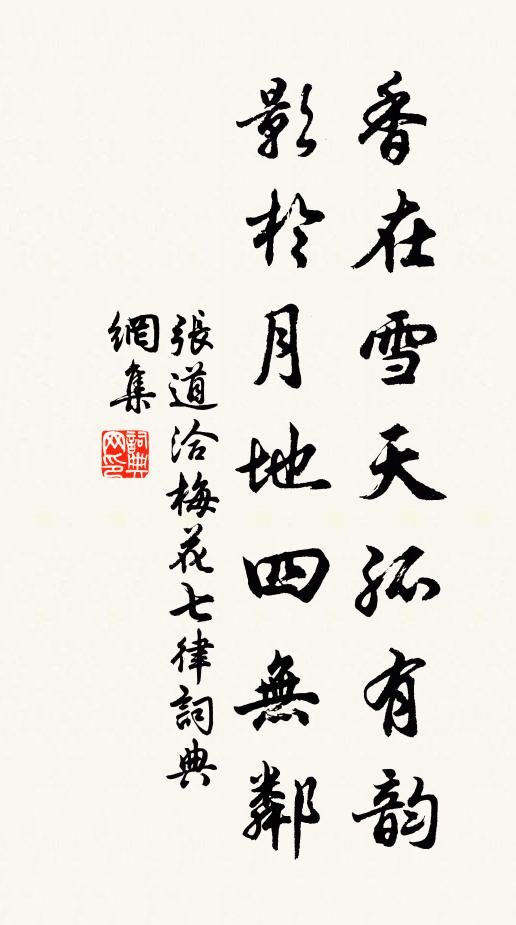 香在雪天孤有韵
影於月地四無鄰
張道洽梅花七律詞典
網集
詞典
网印